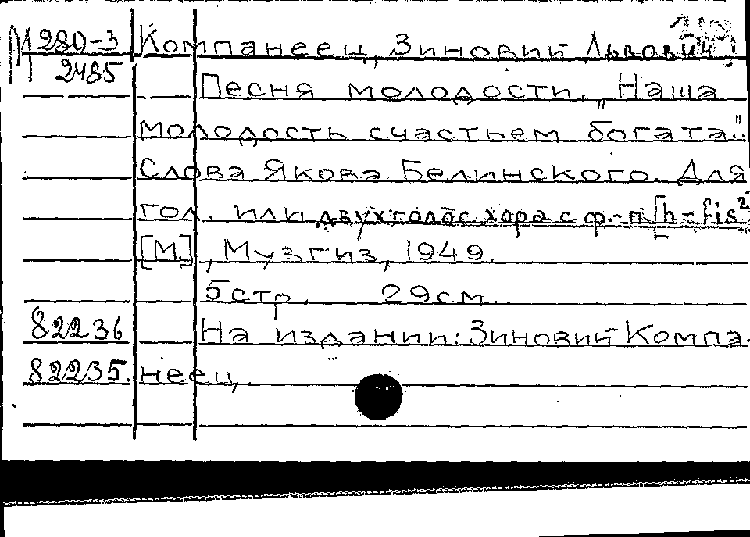 М 280-3 Компанеец, Зиновий Львович.
2485 Песня молодости. „Наша
молодость счастьем богата".
Слова Якова Белинского. Для
гол. или двухголос. хора с ф.-п. [h-fis²]
[М.], Музгиз, 1949.
5 стр. 29 см.
82236 На издании: Зиновий Компа-
82235. неец.